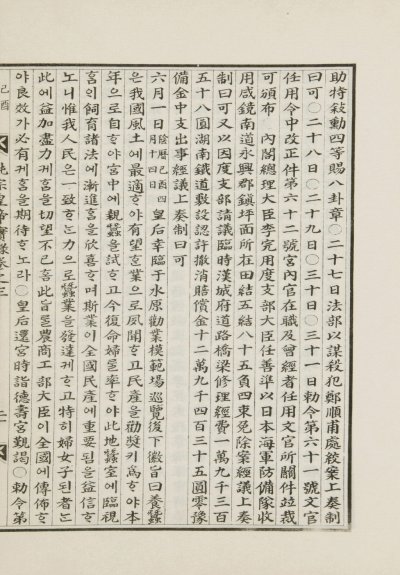 助特敍勳四等賜八卦章○二十七日法部以謀殺犯鄭順甫處絞案上奏制
曰可○二十八日○二十九日○三十日○三十一日勅令第六十一號文官
任用令中改正件第六十二號宮內官在職及曾經者任用文官所關件竝裁
可頒布 內閣總理大臣李完用度支部大臣任善準以日本海軍防備隊收
用咸鏡南道永興郡鎭坪面所在田結五結八十五負四束免除案經議上奏
制曰可又以因度支部請議臨時漢城府道路橋梁修理經費一萬九千三百
五十八圜湖南鐵道敷設認許撤消賠償金十二萬九千四百三十五圜零豫
備金中支出事經議上奏制曰可
六月一日陰曆己酉四月十四日皇后幸臨于水原勸業模範場巡覽後下徽旨曰養蠶
은我國風土에最適ᄒᆞ야有望ᄒᆞᆫ業으로夙聞ᄒᆞ고且民産을勸奬키爲ᄒᆞ야本
年으로自ᄒᆞ야宮中에親蠶을試ᄒᆞ고今復命婦를率ᄒᆞ야此地蠶室에臨視
홈의飼育諸法에漸進홈을欣喜ᄒᆞ며斯業이全國民産에重要됨을益信ᄒᆞ
노니惟我人民은一致ᄒᆞᆫ力으로蠶業을發達케ᄒᆞ고特히婦女子된者ᄂᆞᆫ
此에益加盡力케홈을切望不已홈此旨를農商工部大臣이全國에傳佈ᄒᆞ
야良效가必有케홈을期待ᄒᆞ노라○皇后還宮時詣德壽宮覲謁○勅令第
己酉 純宗皇帝實錄卷之三 二